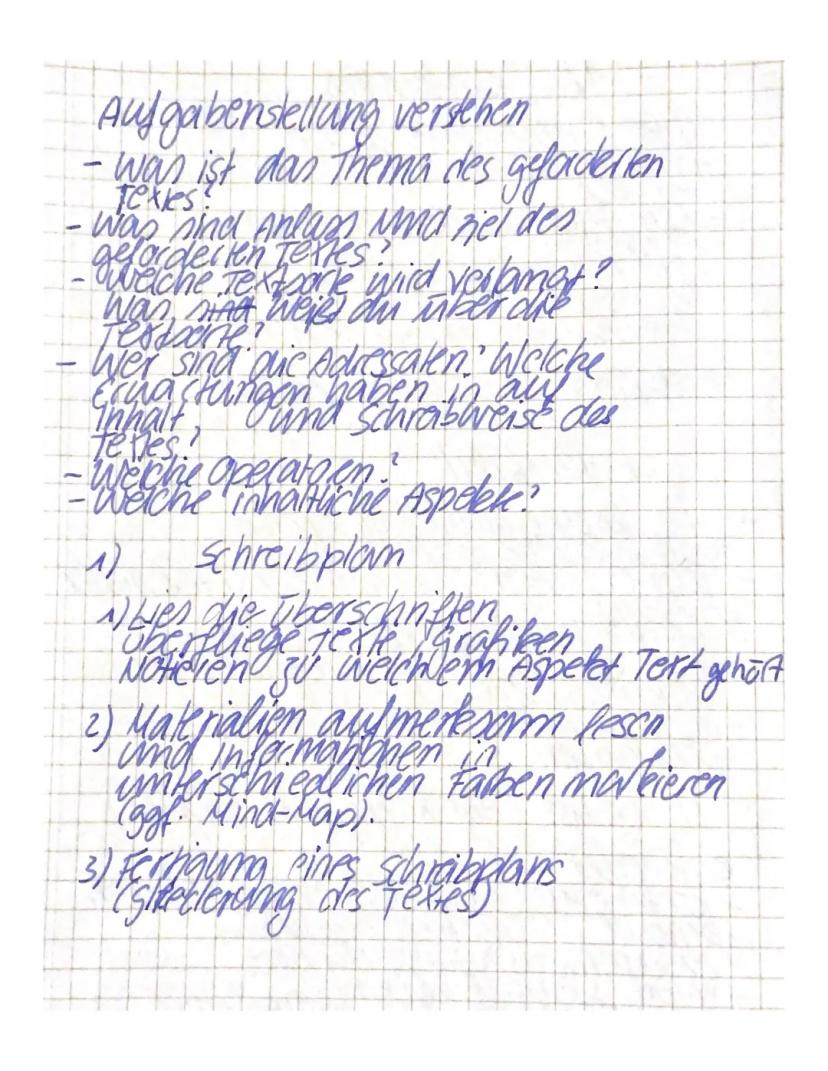 Aufgabenstellung verstehen
- Was ist das Thema des geforderten
Textes?
- Was sind Anlass und Ziel des
geforderten Textes?
- Welche Textsorte wird verlangt?
Was weißt du über die
Textsorte?
- Wer sind die Adressaten? Welche
Erwartungen haben in auf
Inhalt und Schreibweise des
Textes?
- Welche Operatoren?
- Welche inhaltliche Aspekte?
1) Schreibplan
1) Lies die Überschriften
überfliege Texte, Grafiken
Notieren zu welchem Aspekt Text gehört
2) Materialien aufmerksam lesen
und Informationen in
unterschiedlichen Farben markieren
(ggf. Mind-Map).
3) Fertigung eines Schreibplans
(Gliederung des Textes)